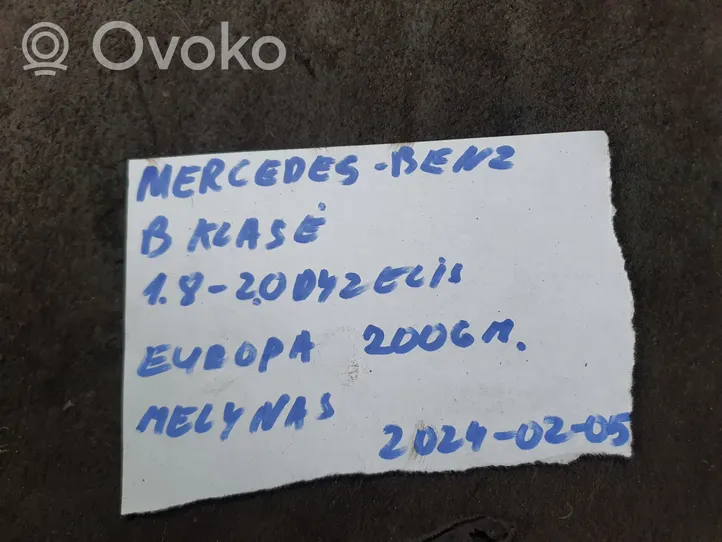 Ovoko
MERCEDES-BENZ
B KLASĖ
1.8-2.0 DYZELIS
EUROPA 2006 M.
MELYNAS
2024-02-05